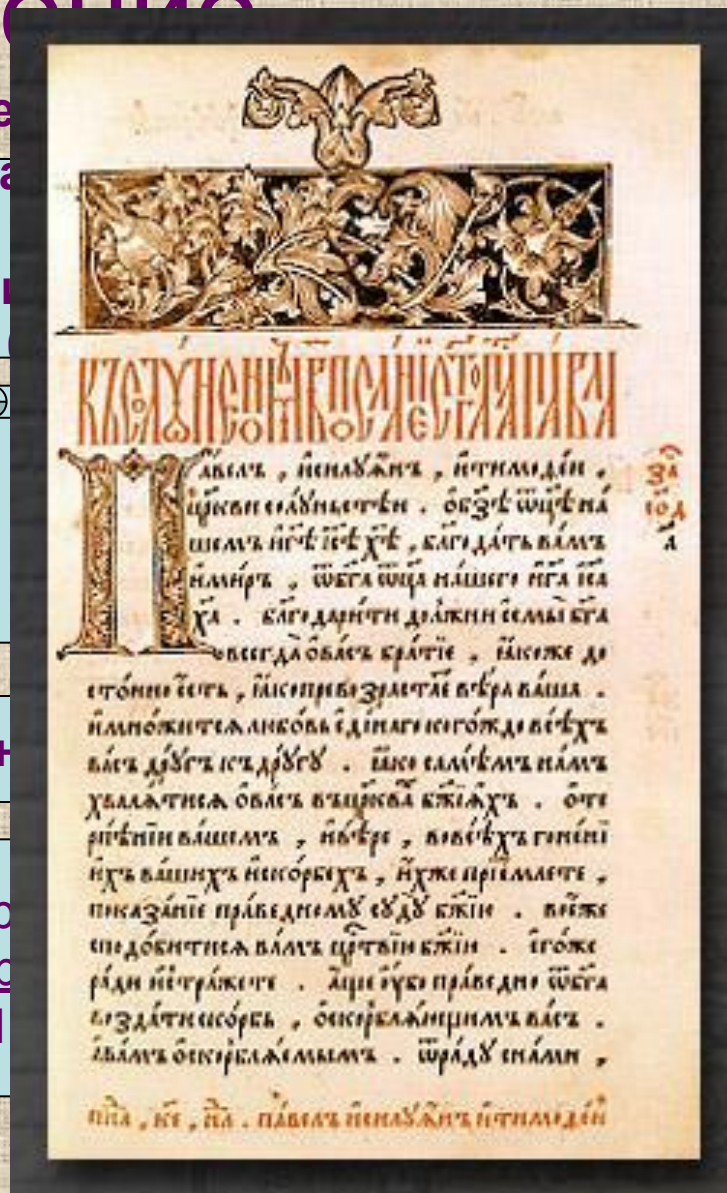 къ солунѧномъ в҃ посланіе ст҃аго ап҃ла павла
Па́велъ , и҆силꙋа́нъ , и҆тимоѳе́й ,
цр҃кви солꙋ́ньстѣй . ѡ҆бз҃ѣ ѿц҃ѣ на́
шемъ и҆гд҃ѣ і҆с҃ѣ хр҇тѣ , благода́ть ва́мъ
и҆ми́ръ , ѿбг҃а ѿц҃а на́шего и҆гд҃а і҆с҃а
хр҇та̀ . благодари́ти до́лжни є҆смы̀ бг҃а
всегда̀ ѡ҆ва́съ бра́тїе , ꙗ҆́коже до
сто́йно є҆́сть , ꙗ҆́ко превозраста́е вѣ́ра ва́ша .
и҆мно́житсѧ любо́вь є҆ди́наго когѡ́ждо всѣ́хъ
ва́съ дрꙋ́гъ къдрꙋ́гꙋ . ꙗ҆́ко самѣ́мъ на́мъ
хвали́тисѧ ѡ҆ва́съ въцр҃ква бж҃їѧхъ . ѡ҆те
рпѣ́нїи ва́шемъ , и҆вѣ́ре , вовсѣ́хъ гоне́нї
и҆хъ ва́шихъ и҆ско́рбехъ , и҆́хже прїе́млете ,
показа́нїе пра́ведномꙋ сꙋдꙋ̀ бж҃їю . во є҆́же
сподо́битисѧ ва́мъ цр҇твїю бж҃їю . є҆го́же
ра́ди и҆стра́жете . а҆́ще ᲂу҆́бо пра́ведно ѿбг҃а
возда́ти ско́рбь , ѡ҆скорблѧ́ющимъ ва́съ .
а҆ва́мъ ѡ҆скорблѧ́емымъ . ѿра́дꙋ сна́ми ,
за
ко҃ е҃ , н҃а . па́велъ и҆силꙋа́нъ и҆тимоѳе́й